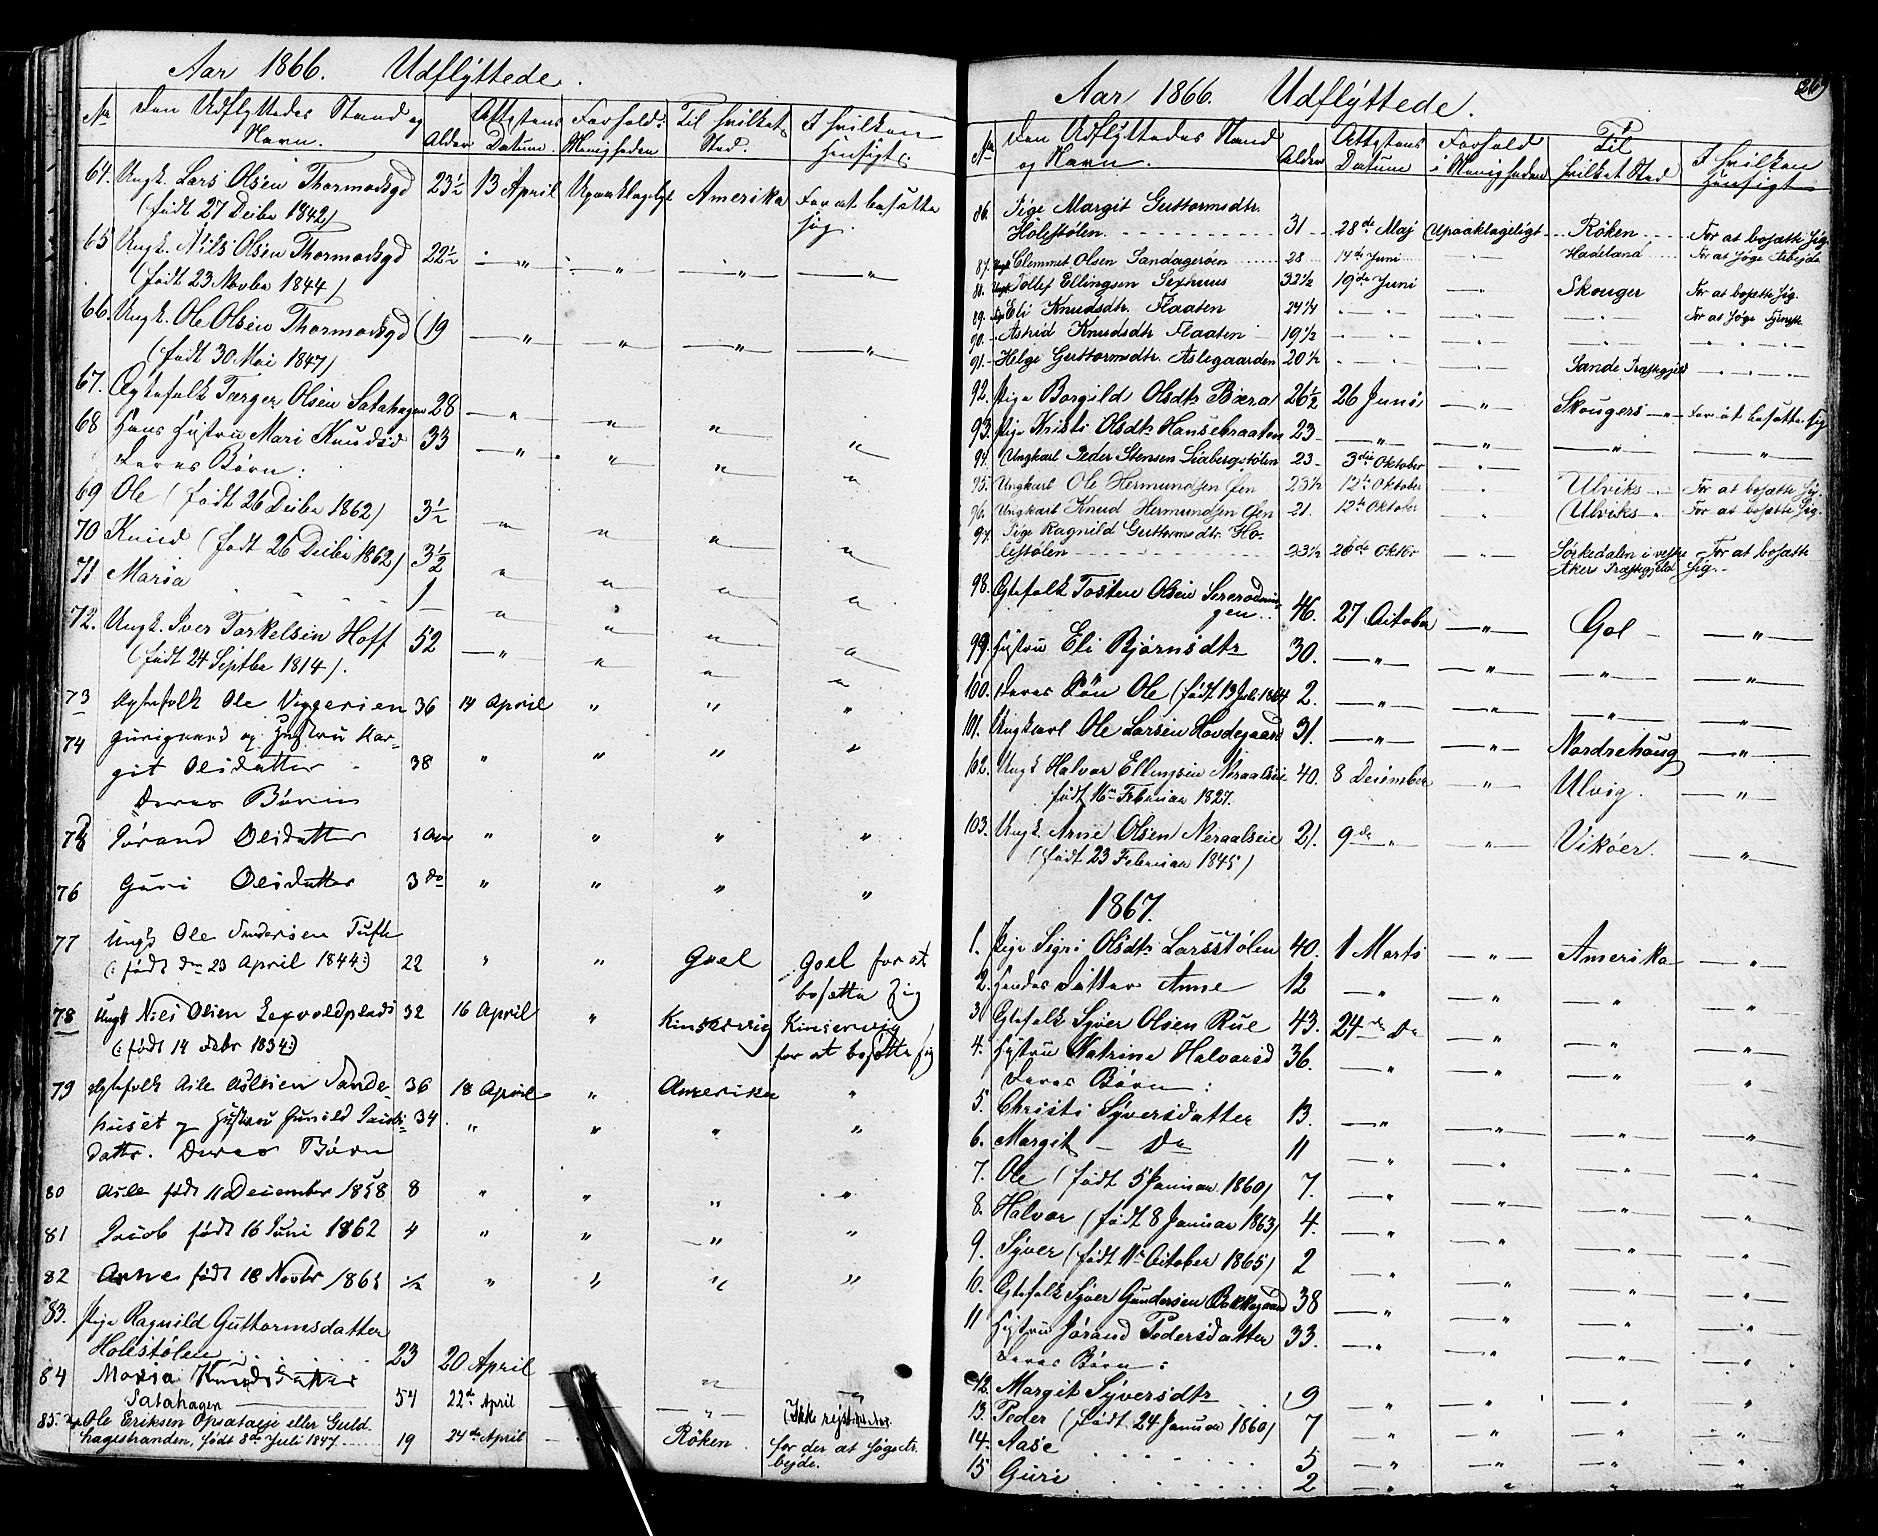 Aar 1866. Udflyttede.
No Den Udflyttedes Stand og Navn. Alder Attestens Datum. Forhold i Menigheden Til hvilket Sted. I hvilken Hensigt.
64. Ungk. Lars Olsen Thormodsgd 23½ 13 April Upaaklageligt Amerika For at bosætte
(født 27 Decbr 1842) sig.
65 Ungk. Nils Olsen Thormodsgd 22½ — „ — „ — „ — „
(født 23 Novbr 1844)
66. Ungk. Ole Olsen Thormodsgd 19 — „ — „ — „ — „
(født 30 Mai 1847)
67. Ægtefolk Torger Olsen Satahagen 28 — „ „ „ „
68 Hans Hustru Mari Knudsd 33 — „ „ „ „
Deres Børn:
69 Ole (født 26 Decbr 1862) 3½ „ „ „ „
70 Knud (født 26 Decbr 1862) 3½ „ „ „ „
71 Maria 1 „ „ „ „
72. Ungk. Iver Torkelsen Hoff 52 — „ „ „ „
(født 24 Septbr 1814).
73 Ægtefolk Ole Viggersen 36 14 April „ „ „
74 Gurigaard og Hustru Mar-
git Olsdatter 38 „ „ „ „
Deres Børn
75 Jørand Olsdatter 5 Aar „ „ „ „
76 Guri Olsdatter 3 do „ „ „ „
77 Ungk Ole Andersen Tufte
(: født den 23 April 1844:) 22 „ „ Goel Goel for at
bosætte sig
78 Ungk Nils Olsen Leqvoldplads 32 16 April „ Kinservig Kinservig
(: født 14 Febr 1834:) for at bosætte sig
79 Ægtefolk Asle Aslesen Sande- 36 18 April „ Amerika „
huset og Hustru Gunild Jacobs- 34 „ „ „ „
datter. Deres Børn
80 Asle født 11 December 1858 8 „ „ „ „
81 Jacob født 16 Juni 1862 4 „ „ „ „
82 Arne født 18 Novbr 1865 ½ „ „ „ „
83. Pige Ragnild Guttormsdatter
Holestølen 23 20 April „ „
84 Maria Knudsdatter
Satahagen 54 22de April — „ (Ikke rejst
85. Ole Eriksen Opsatæie eller Guld
hagestranden, født 8de Juli 1847 19 24de April Røken. for der at søge Ar-
bejde.
Aar 1866. Udflyttede. 269
No Den Udflyttedes Stand og Navn. Alder Attestens Datum Forhold i Menigheden Til hvilket Sted I hvilken Hensigt
86. Pige Margit Guttormsdtr.
Holestølen. 31 28de Maj Upaaklageligt Røken For at bosætte sig.
87. Ungk Clemmet Olsen Sandagerøen 28 14de Juni „ Hadeland For at søge Arbejde
88. Ungk Tollef Ellingsen Sexhuus 32½ 19de Juni „ Skouger For at bosætte sig.
89. Eli Knudsdtr. Flaaten 24¼ „ „ „ For at søge Tjeneste
90. Astrid Knudsdtr Flaaten 19½ „ „ „ „
91. Helge Guttormsdtr. Aslegaarden 20½ „ „ Sande Præstegjeld „
92. Pige Borgild Olsdtr Bæra 26½ 26 Juni — „ Skougers — „ For at bosætte sig
93. Pige Kristi Olsdtr Hansebraaten 23 — „ — „ — „ — „
94. Ungkarl Peder Stensen Liabergstølen 23 3die Oktober „
95. Ungkarl Ole Hermundsen Øen 23½ 12te Oktober „ Ulviks For at bosætte sig.
96. Ungkarl Knud Hermundsen Øen 21. 12te Oktober „ Ulviks For at bosætte sig.
97. Pige Ragnild Guttormsdtr. Ho-
lestølen 23½ 26de Oktbr „ Sørkedalen i vestre For at bosætte
Akers Præstegjeld sig.
98. Ægtefolk Tosten Olsen
gen 46. 27 October — „ Gol — „
99. Hustru Eli Bjørnsdtr 30. — „ — „ — „ — „
100. Deres Søn Ole (født 13 Juli 1864 2. — „ — „ — „ — „
101. Ungkarl Ole Larsen Hovdegaard 31. — „ — „ Nordrehoug — „
102. Ungk Halvor Ellingsen Neraalseie 40. 8 December — „ Ulvig. — „
født 16de Februar 1827.
103. Ungk. Arne Olsen Neraalseie 21. 9de „ — „ Vikøer. — „
(født 23 Februar 1845)
1867.
1. Pige Sigri Olsdtr Larsstølen 40. 1 Marts — „ Amerika — „
2. Hendes Datter Anne 12 — „ — „ — „ — „
3. Ægtefolk Syver Olsen Rue 43. 24de Do — „ — „ — „
4. Hustru Katrine Halvorsd 36. — „ — „ — „ — „
Deres Børn:
5. Christi Syversdatter 13. — „ — „ — „ — „
6. Margit — Do 11 — „ — „ — „ — „
7. Ole (født 5 Januar 1860) 7. — „ — „ — „ — „
8. Halvor (født 8 Januar 1863) 4. — „ — „ — „ — „
9. Syver (født 11te October 1865) 2 — „ — „ — „ — „
10. Ægtefolk Syver Gundersen Bakkegaard 38 — „ — „ — „ — „
11 Hustru Jørand Pedersdatter 33. — „ — „ — „ — „
Deres Børn:
12. Margit Syversdtr 9 — „ „ — „ — „
13. Peder (født 24 Januar 1860) 7 — „ — „ — „ — „
14. Aase 5 — „ — „ — „ — „
15 Guri 2 — „ „ — „ „